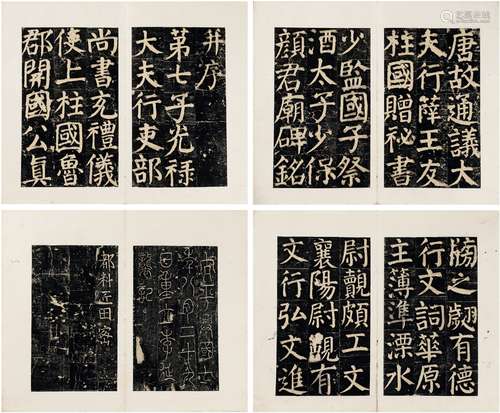 唐故通議大
夫行薛王友
柱國贈秘書
少監國子祭
酒太子少保
顏君廟碑銘
并序
第七子光祿
大夫行吏部
尚書充禮儀
使上柱國魯
郡開國公真
之翽有德
行文詞華原
主簿準溧水
尉覿頗工文
襄陽尉覬有
文行弘文進
八月二十九
日重立李延
襲記
都料匠田密